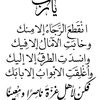 يا رب
انقطع الرجاء إلا منك
وخابت الآمال إلا فيك
وانسدت الطرق إلا إليك
وأغلقت الأبواب إلا بابك
فكن لأهل غزة ناصرا ومعينا